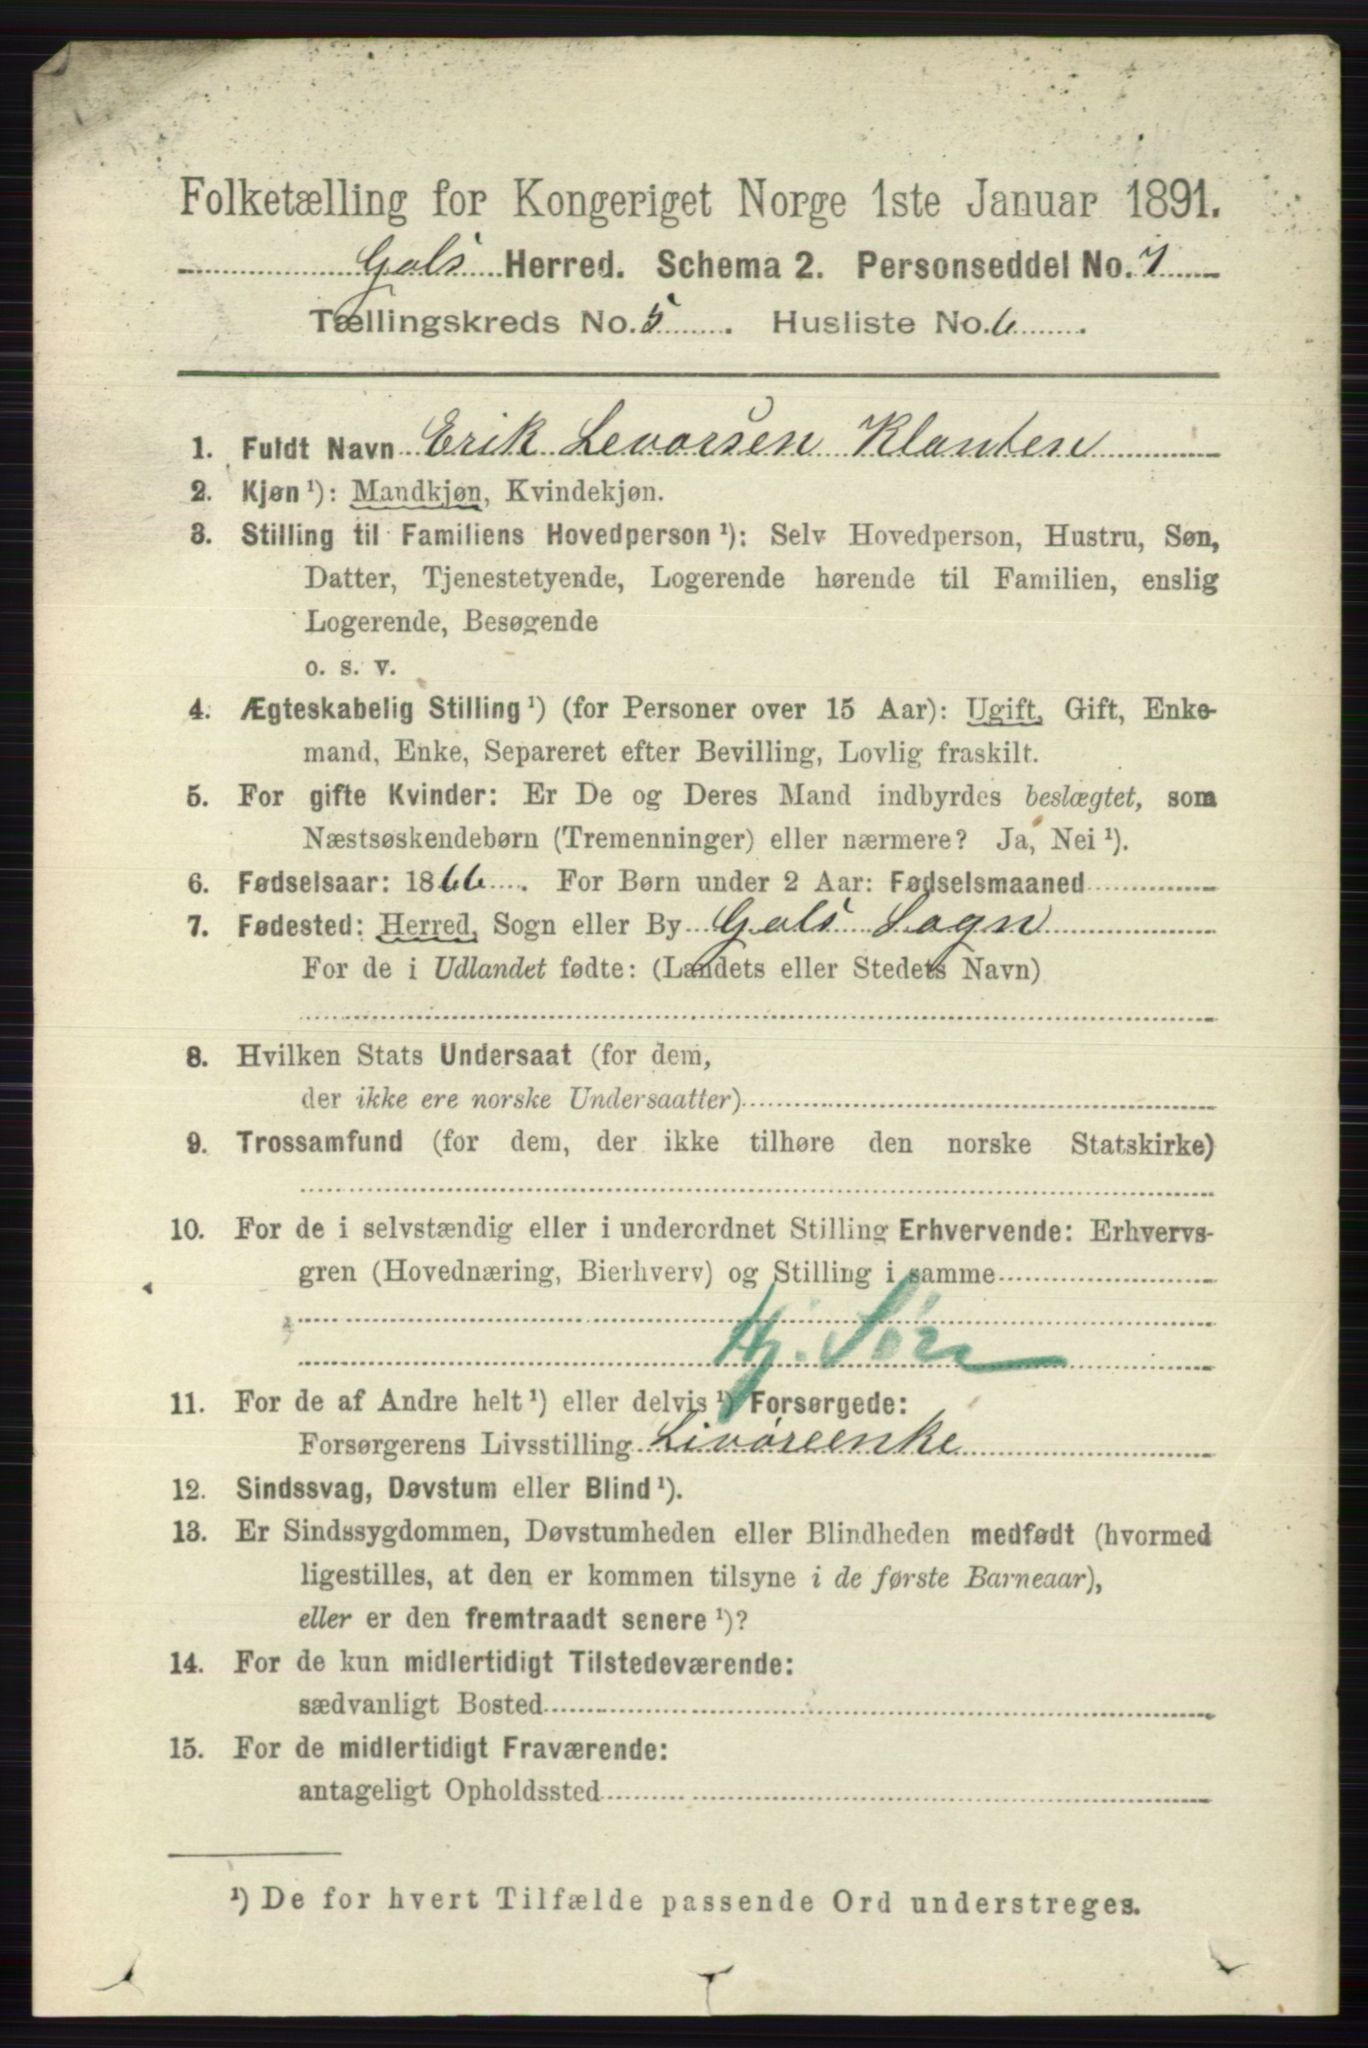 Folketælling for Kongeriget Norge 1ste Januar 1891.
Gols Herred. Schema 2. Personseddel No. 7
Tællingskreds No. 5. Husliste No. 6.
1. Fuldt Navn Erik Levorsen Klanten
2. Kjøn¹): Mandkjøn, Kvindekjøn.
3. Stilling til Familiens Hovedperson¹): Selv Hovedperson, Hustru, Søn,
Datter, Tjenestetyende, Logerende hørende til Familien, enslig
Logerende, Besøgende
o. s. v.
4. Ægteskabelig Stilling¹) (for Personer over 15 Aar): Ugift, Gift, Enke-
mand, Enke, Separeret efter Bevilling, Lovlig fraskilt.
5. For gifte Kvinder: Er De og Deres Mand indbyrdes beslægtet, som
Næstsøskendebørn (Tremenninger) eller nærmere? Ja, Nei¹).
6. Fødselsaar: 1866. For Børn under 2 Aar: Fødselsmaaned
7. Fødested: Herred, Sogn eller By Gols Sogn
For de i Udlandet fødte: (Landets eller Stedets Navn)
8. Hvilken Stats Undersaat (for dem,
der ikke ere norske Undersaatter)
9. Trossamfund (for dem, der ikke tilhøre den norske Statskirke)
10. For de i selvstændig eller i underordnet Stilling Erhvervende: Erhvervs-
gren (Hovednæring, Bierhverv) og Stilling i samme
Hj. Søn
11. For de af Andre helt¹) eller delvis¹) Forsørgede:
Forsørgerens Livsstilling Livøreenke
12. Sindssvag, Døvstum eller Blind¹).
13. Er Sindssygdommen, Døvstumheden eller Blindheden medfødt (hvormed
ligestilles, at den er kommen tilsyne i de første Barneaar),
eller er den fremtraadt senere¹)?
14. For de kun midlertidigt Tilstedeværende:
sædvanligt Bosted
15. For de midlertidigt Fraværende:
antageligt Opholdssted
¹) De for hvert Tilfælde passende Ord understreges.